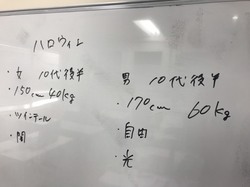 ハロウィン
・女 10代後半
・150cm 40kg
・ツインテール
・闇
男 10代後半
・170cm 60kg
・自由
・光